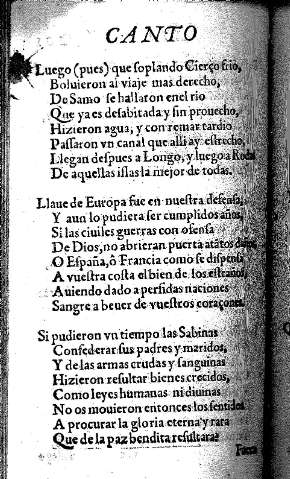 CANTO
Luego (pues) que soplando Cierço frio,
Boluieron al viaje mas derecho,
De Samo se hallaron en el rio
Que ya es desabitada y sin prouecho,
Hizieron agua, y con remar tardio
Passaron vn canal que alli ay estrecho,
Llegan despues a Longo, y luego a Rodas
De aquellas islas la mejor de todas.
Llaue de Europa fue en nuestra defensa,
Y aun lo pudiera ser cumplidos años,
Si las ciuiles guerras con ofensa
De Dios, no abrieran puerta a tãtos daños
O España, ô Francia como se dispensa
A vuestra costa el bien de los estraños,
Auiendo dado a perfidas naciones
Sangre a beuer de vuestros coraçones.
Si pudieron vn tiempo las Sabinas
Confederar sus padres y maridos,
Y de las armas crudas y sanguinas
Hizieron resultar bienes crecidos,
Como leyes humanas ni diuinas
No os mouieron entonces los sentidos
A procurar la gloria eterna y rara
Que de la paz bendita resultara?